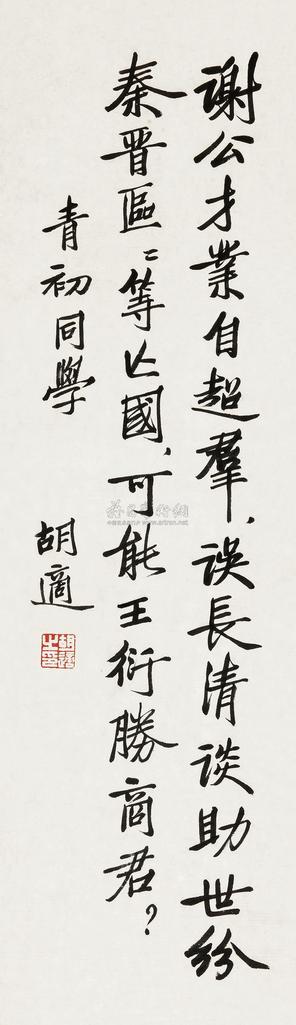 謝公才業自超羣，誤長清談助世紛
秦晉區〻等亡國，可能王衍勝商君？
青初同學
胡適
胡適之印